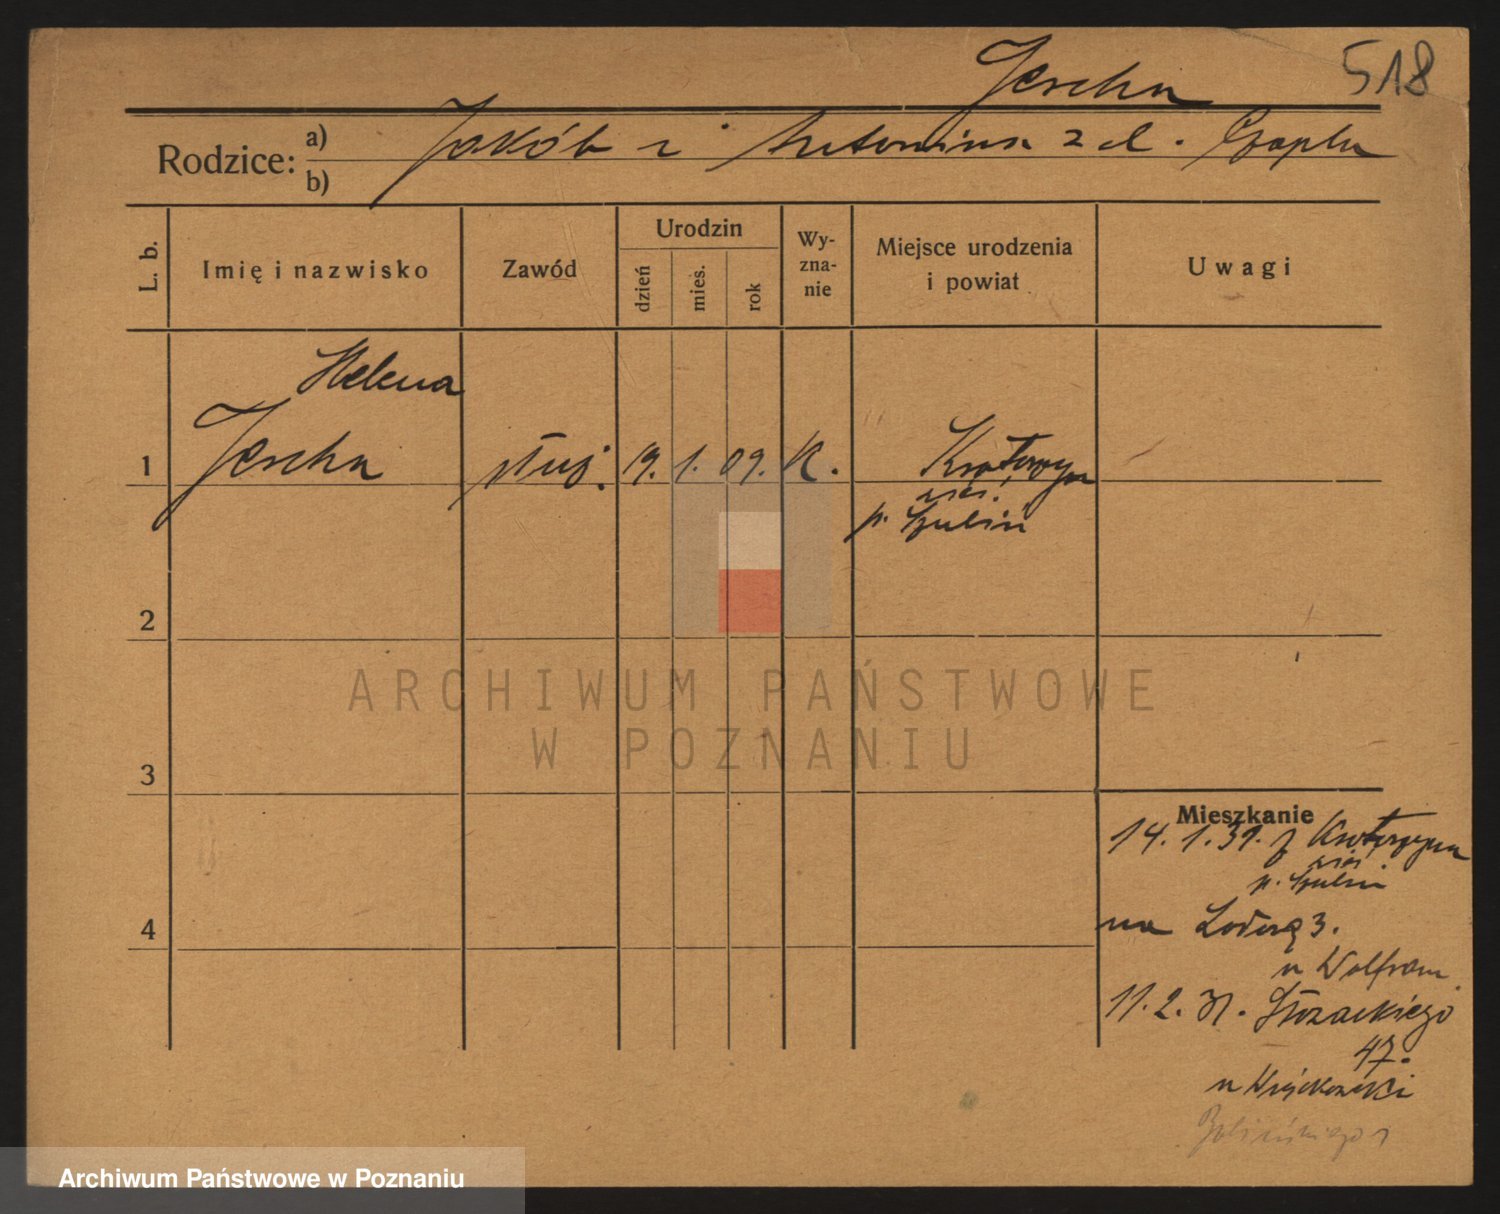 518
Jercha
Rodzice: a) Jakób i Antonina z d. Czapla
b)
L. b. Imię i nazwisko Zawód Urodzin dzień mies. rok Wy-zna-nie Miejsce urodzenia i powiat Uwagi
Helena
1 Jercha służ. 19. 1. 09. K. Krotoszyn
wieś
p. Szubin
2
ARCHIWUM PAŃSTWOWE
W POZNANIU
3
Mieszkanie
14. 1. 31. z Krotoszyna
wieś
p. Szubin
4
na Łodzią 3.
u Wolfram
11. 2. 31.
47.
u
Archiwum Państwowe w Poznaniu